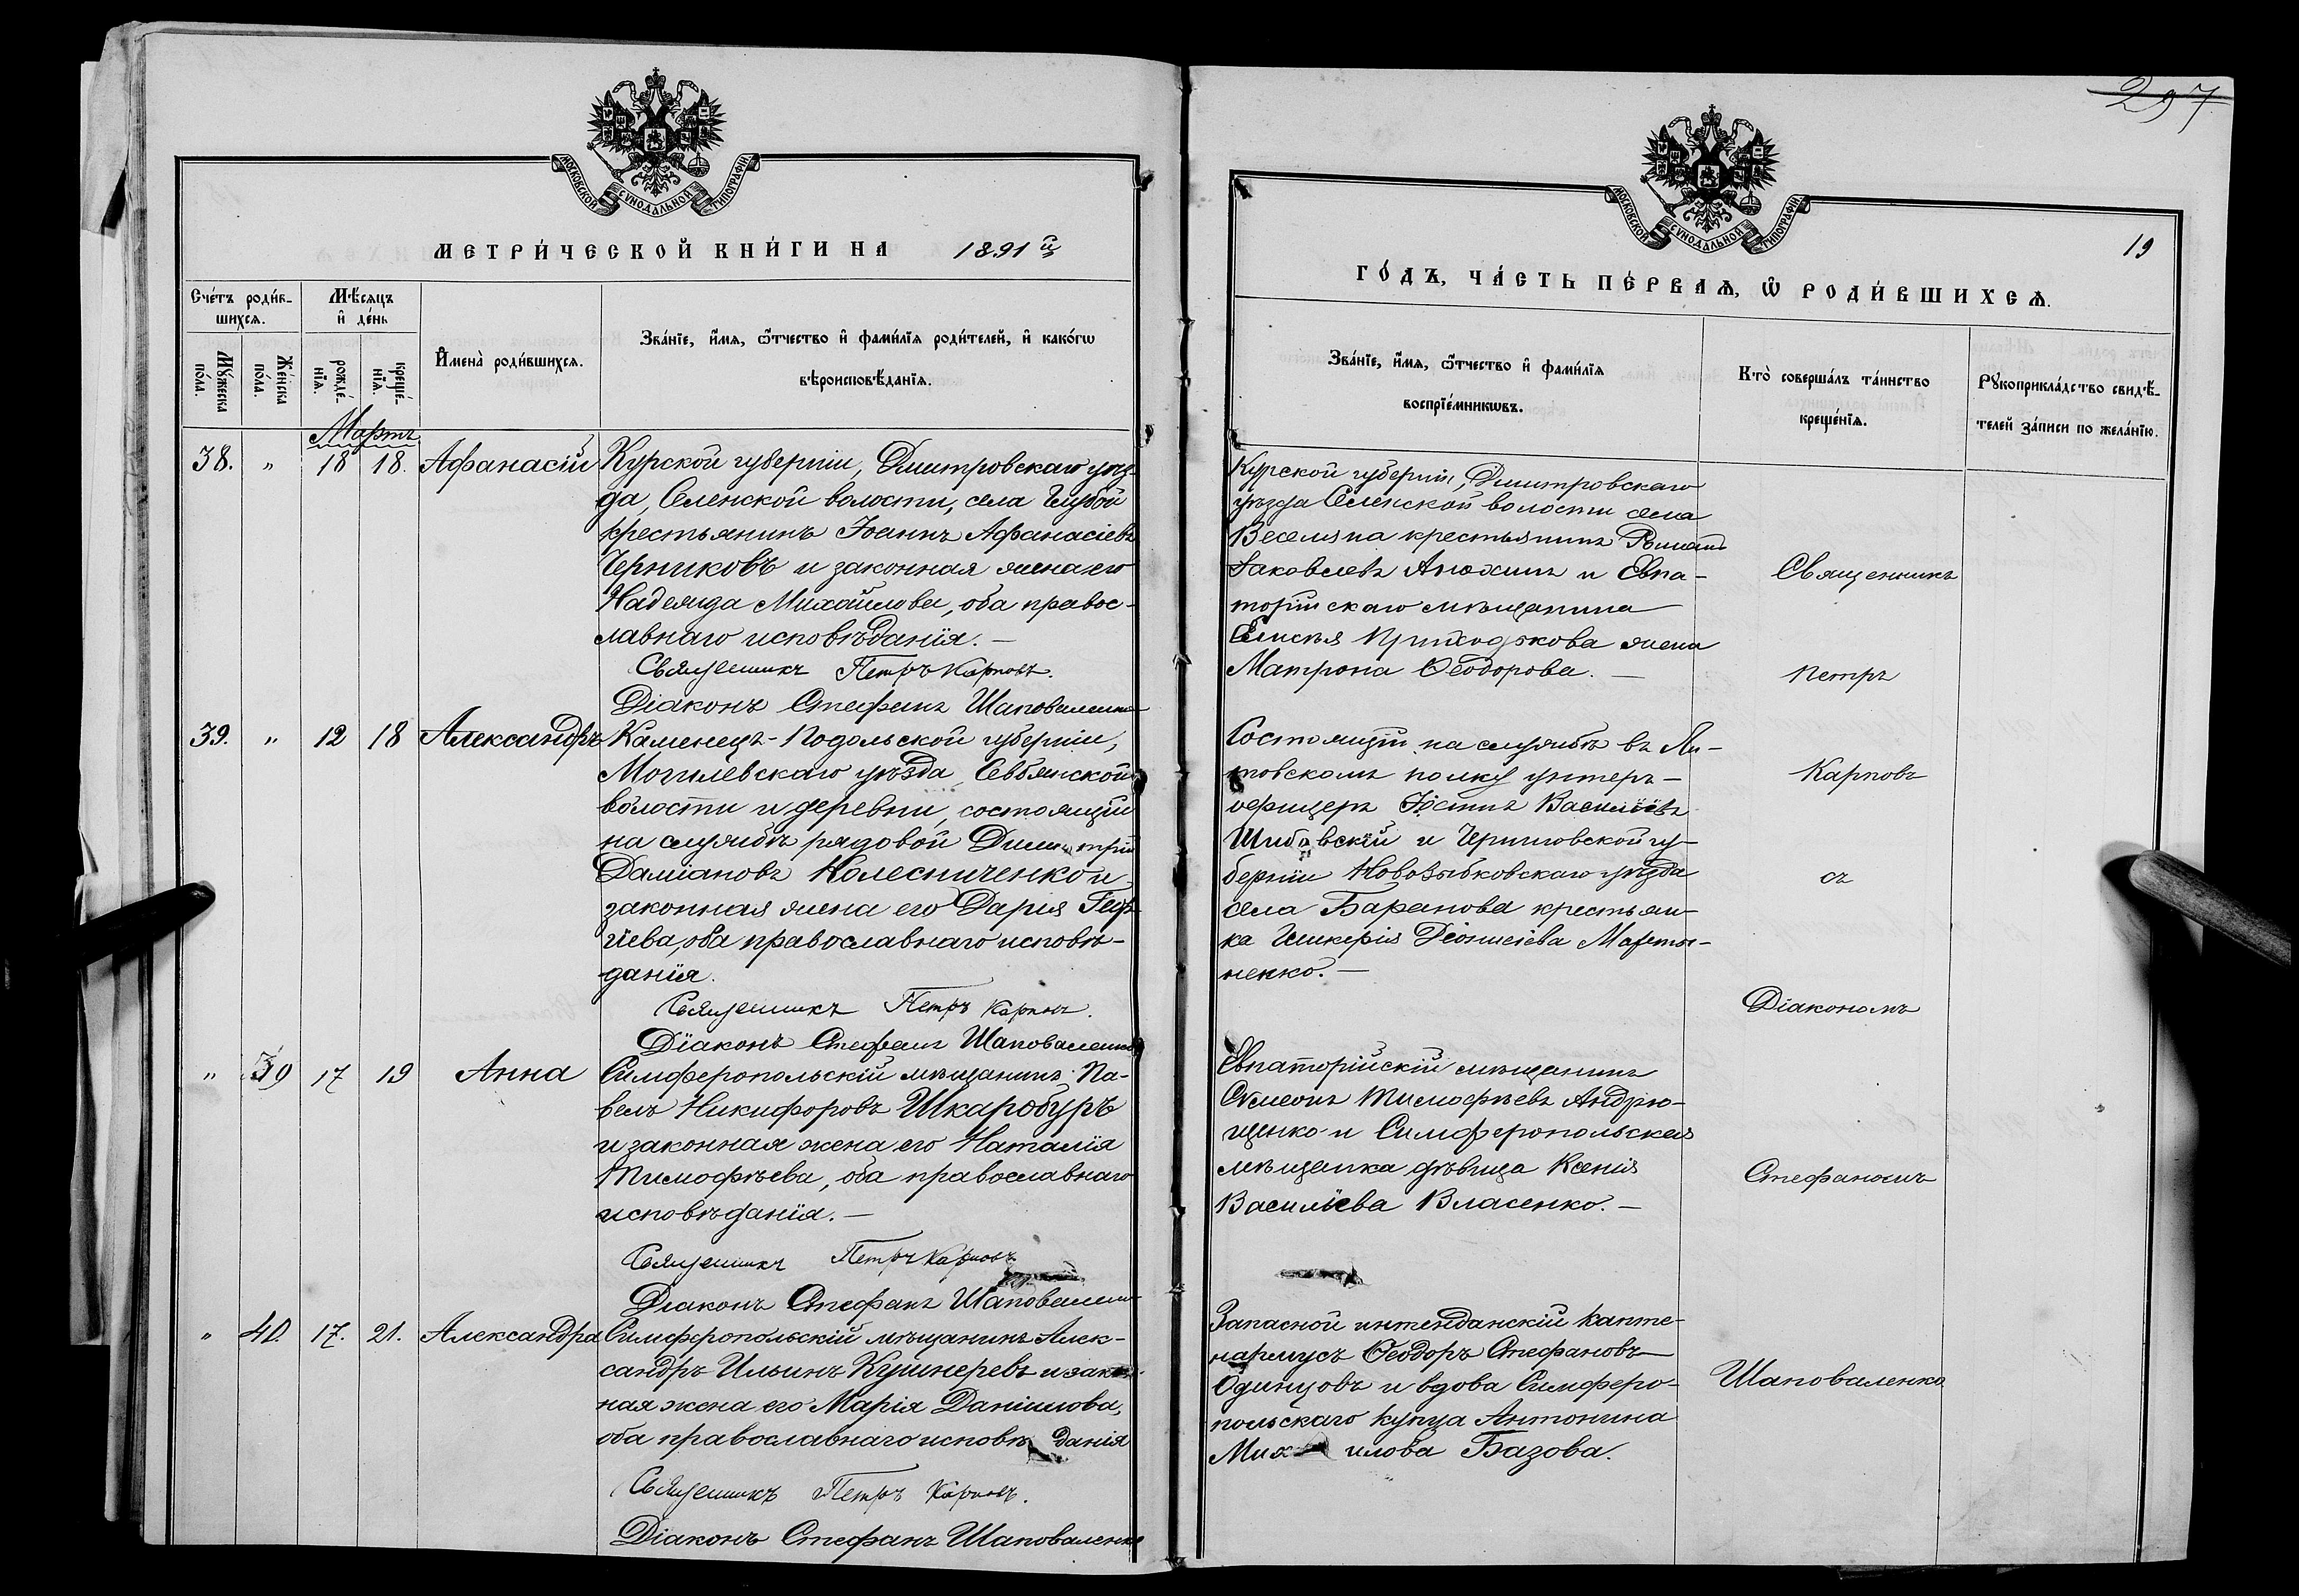 МОСКОВСКОЙ СУНОДАЛЬНОЙ ТИПОГРАФІИ
МЕТРИ́ЧЕСКОЙ КНИ́ГИ НА 1891й
Сче́тъ роди́в-
шихсѧ.
Мѣ́сѧцъ
и҆ де́нь
Мꙋ́жеска
по́ла.
Же́нска
по́ла.
рожде́-
нїѧ.
креще́-
нїѧ.
И҆мена̀ роди́вшихсѧ.
Зва́нїе, и҆́мѧ, ѻ҆́тчество и҆ фами́лїѧ роди́телей, и҆ како́гѡ
вѣроисповѣ́данїѧ.
Мартъ
38. " 18 18. Афанасій
Курской губерніи, Дмитровскаго уѣз-
да, Селенской волости, села
крестьянинъ Іоаннъ Афанасіевъ
Черниковъ и законная жена его
Надежда Михайлова, оба правос-
лавнаго исповѣданія. —
Священникъ Петръ Карповъ.
Діаконъ Стефанъ Шаповаленко
39. " 12 18 Александръ
Каменецъ-Подольской губерніи,
Могилевскаго уѣзда,
волости и деревни, состоящій
на службѣ рядовой Димитрій
Даміановъ Колесниченко и
законная жена его Дарія Геор-
гіева, оба православнаго исповѣ-
данія.
Священникъ Петръ Карповъ.
Діаконъ Стефанъ Шаповаленко
" 39 17 19 Анна
Симферопольскій мѣщанинъ Па-
велъ Никифоровъ Шкаробуръ
и законная жена его Наталія
Тимофѣева, оба православнаго
исповѣданія. —
Священникъ Петръ Карповъ
Діаконъ Стефанъ Шаповаленко
" 40. 17. 21. Александра
Симферопольскій мѣщанинъ Алек-
сандръ Ильинъ Кушнеревъ и закон-
ная жена его Марія Даніилова,
оба православнаго исповѣданія
Священникъ Петръ Карповъ.
Діаконъ Стефанъ Шаповаленко
297
19
МОСКОВСКОЙ СУНОДАЛЬНОЙ ТИПОГРАФІИ
ГО́ДЪ, ЧА́СТЬ ПЕ́РВАѦ, Ѡ҆ РОДИ́ВШИХСѦ.
Зва́нїе, и҆́мѧ, ѻ҆́тчество и҆ фами́лїѧ
воспрїе́мникѡвъ.
Кто̀ соверша́лъ та́инство
креще́нїѧ.
Рꙋкоприкла́дство свидѣ́-
телей за́писи по жела́нїю.
Курской губерніи, Дмитровскаго
уѣзда Селенской волости села
Веселяпа крестьянинъ Романъ
Іаковлевъ Анохинъ и Евпа-
торійскаго мѣщанина
Елисѣя Приходькова жена
Матрона Ѳеодорова. —
Состоящій на службѣ въ Ли-
товскомъ полку унтеръ-
офицеръ Іустинъ Василіевъ
и Черниговской гу-
берніи Новозыбковскаго уѣзда
села Баранова крестьян-
ка Гликерія Діонисіева Марты-
ненко. —
Евпаторійскій мѣщанинъ
Сѵмеонъ Тимофѣевъ Андрю-
щенко и Симферопольская
мѣщанка дѣвица Ксенія
Василіева Власенко. —
Запасной интенданскій капте-
нармусъ Ѳеодоръ Стефановъ
Одинцовъ и вдова Симферо-
польскаго купца Антонина
Михаилова Базова.
Священникъ
Петръ
Карповъ
съ
Діакономъ
Стефаномъ
Шаповаленко